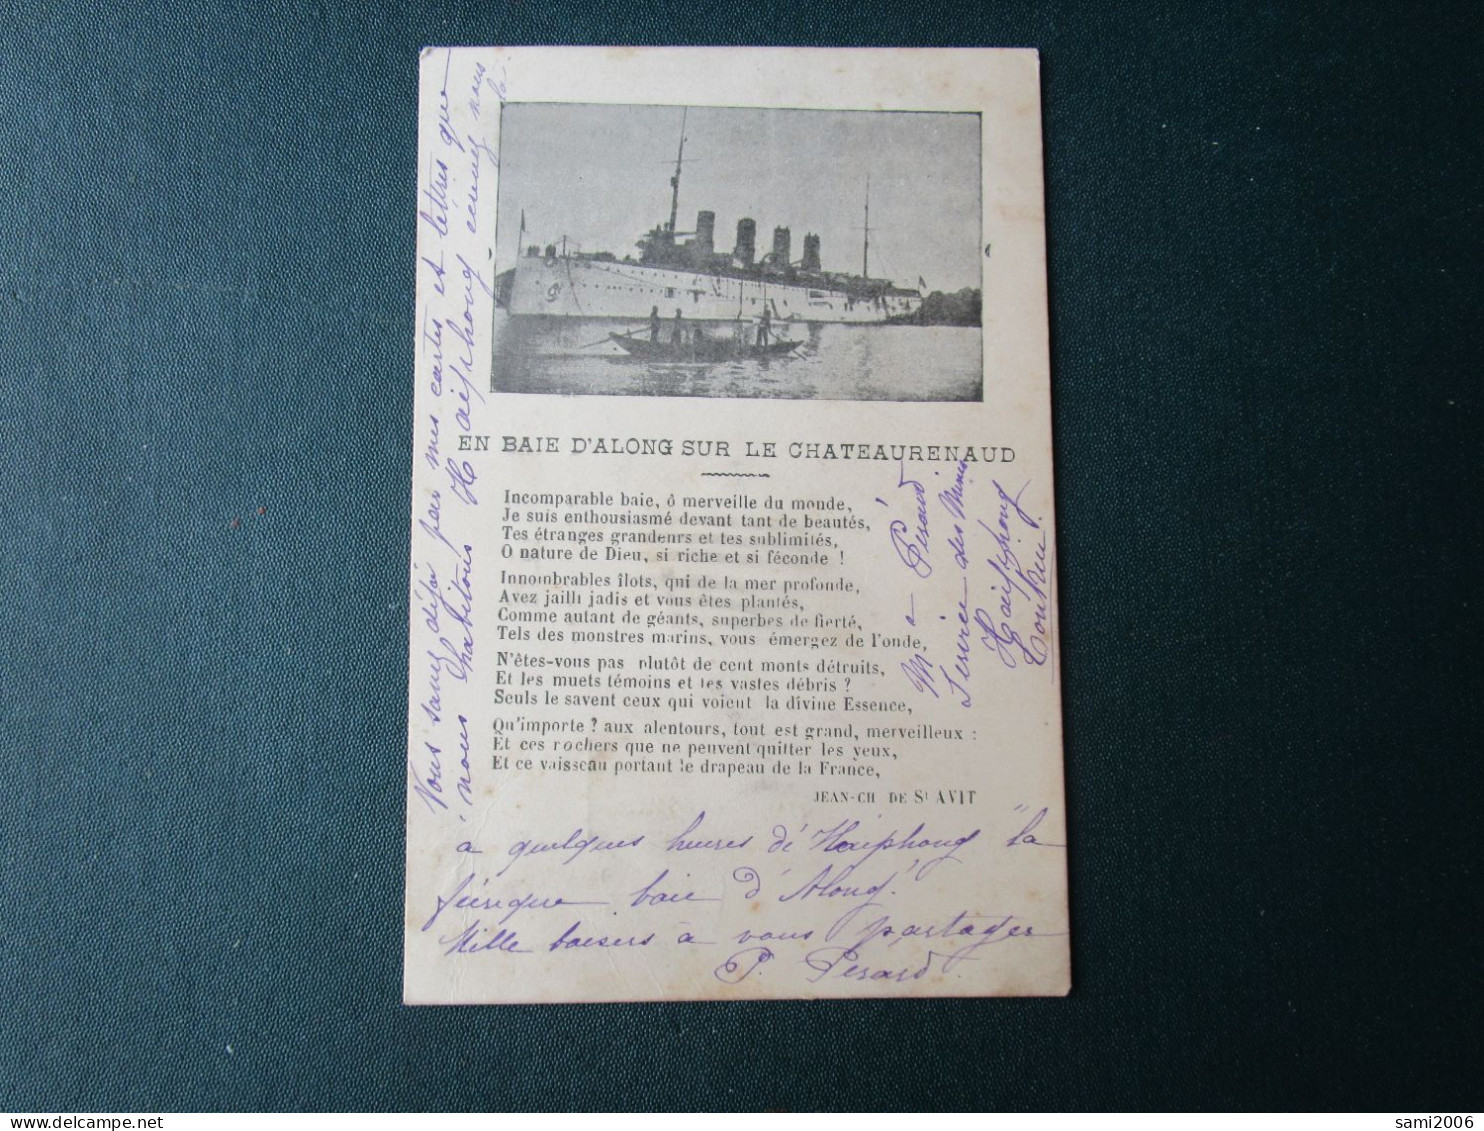 EN BAIE D'ALONG SUR LE CHATEAURENAUD
Incomparable baie, ô merveille du monde,
Je suis enthousiasmé devant tant de beautés,
Tes étranges grandeurs et tes sublimités,
O nature de Dieu, si riche et si féconde !
Innombrables îlots, qui de la mer profonde,
Avez jailli jadis et vous êtes plantés,
Comme autant de géants, superbes de fierté,
Tels des monstres marins, vous émergez de l'onde,
N'êtes-vous pas plutôt de cent monts détruits,
Et les muets témoins et les vastes débris ?
Seuls le savent ceux qui voient la divine Essence,
Qu'importe ? aux alentours, tout est grand, merveilleux :
Et ces rochers que ne peuvent quitter les yeux,
Et ce vaisseau portant le drapeau de la France,
JEAN-CH DE St AVIT
Vous savez déjà par mes cartes et lettres que
nous habitons Haïphong écrivez nous
là
M Pérard
Service des Mines
Haïphong
Tonkin.
à quelques heures d'Haiphong "la
féerique baie d'Along!
Mille baisers à vous partager
P. Perard.
delcampe.net
sami2006